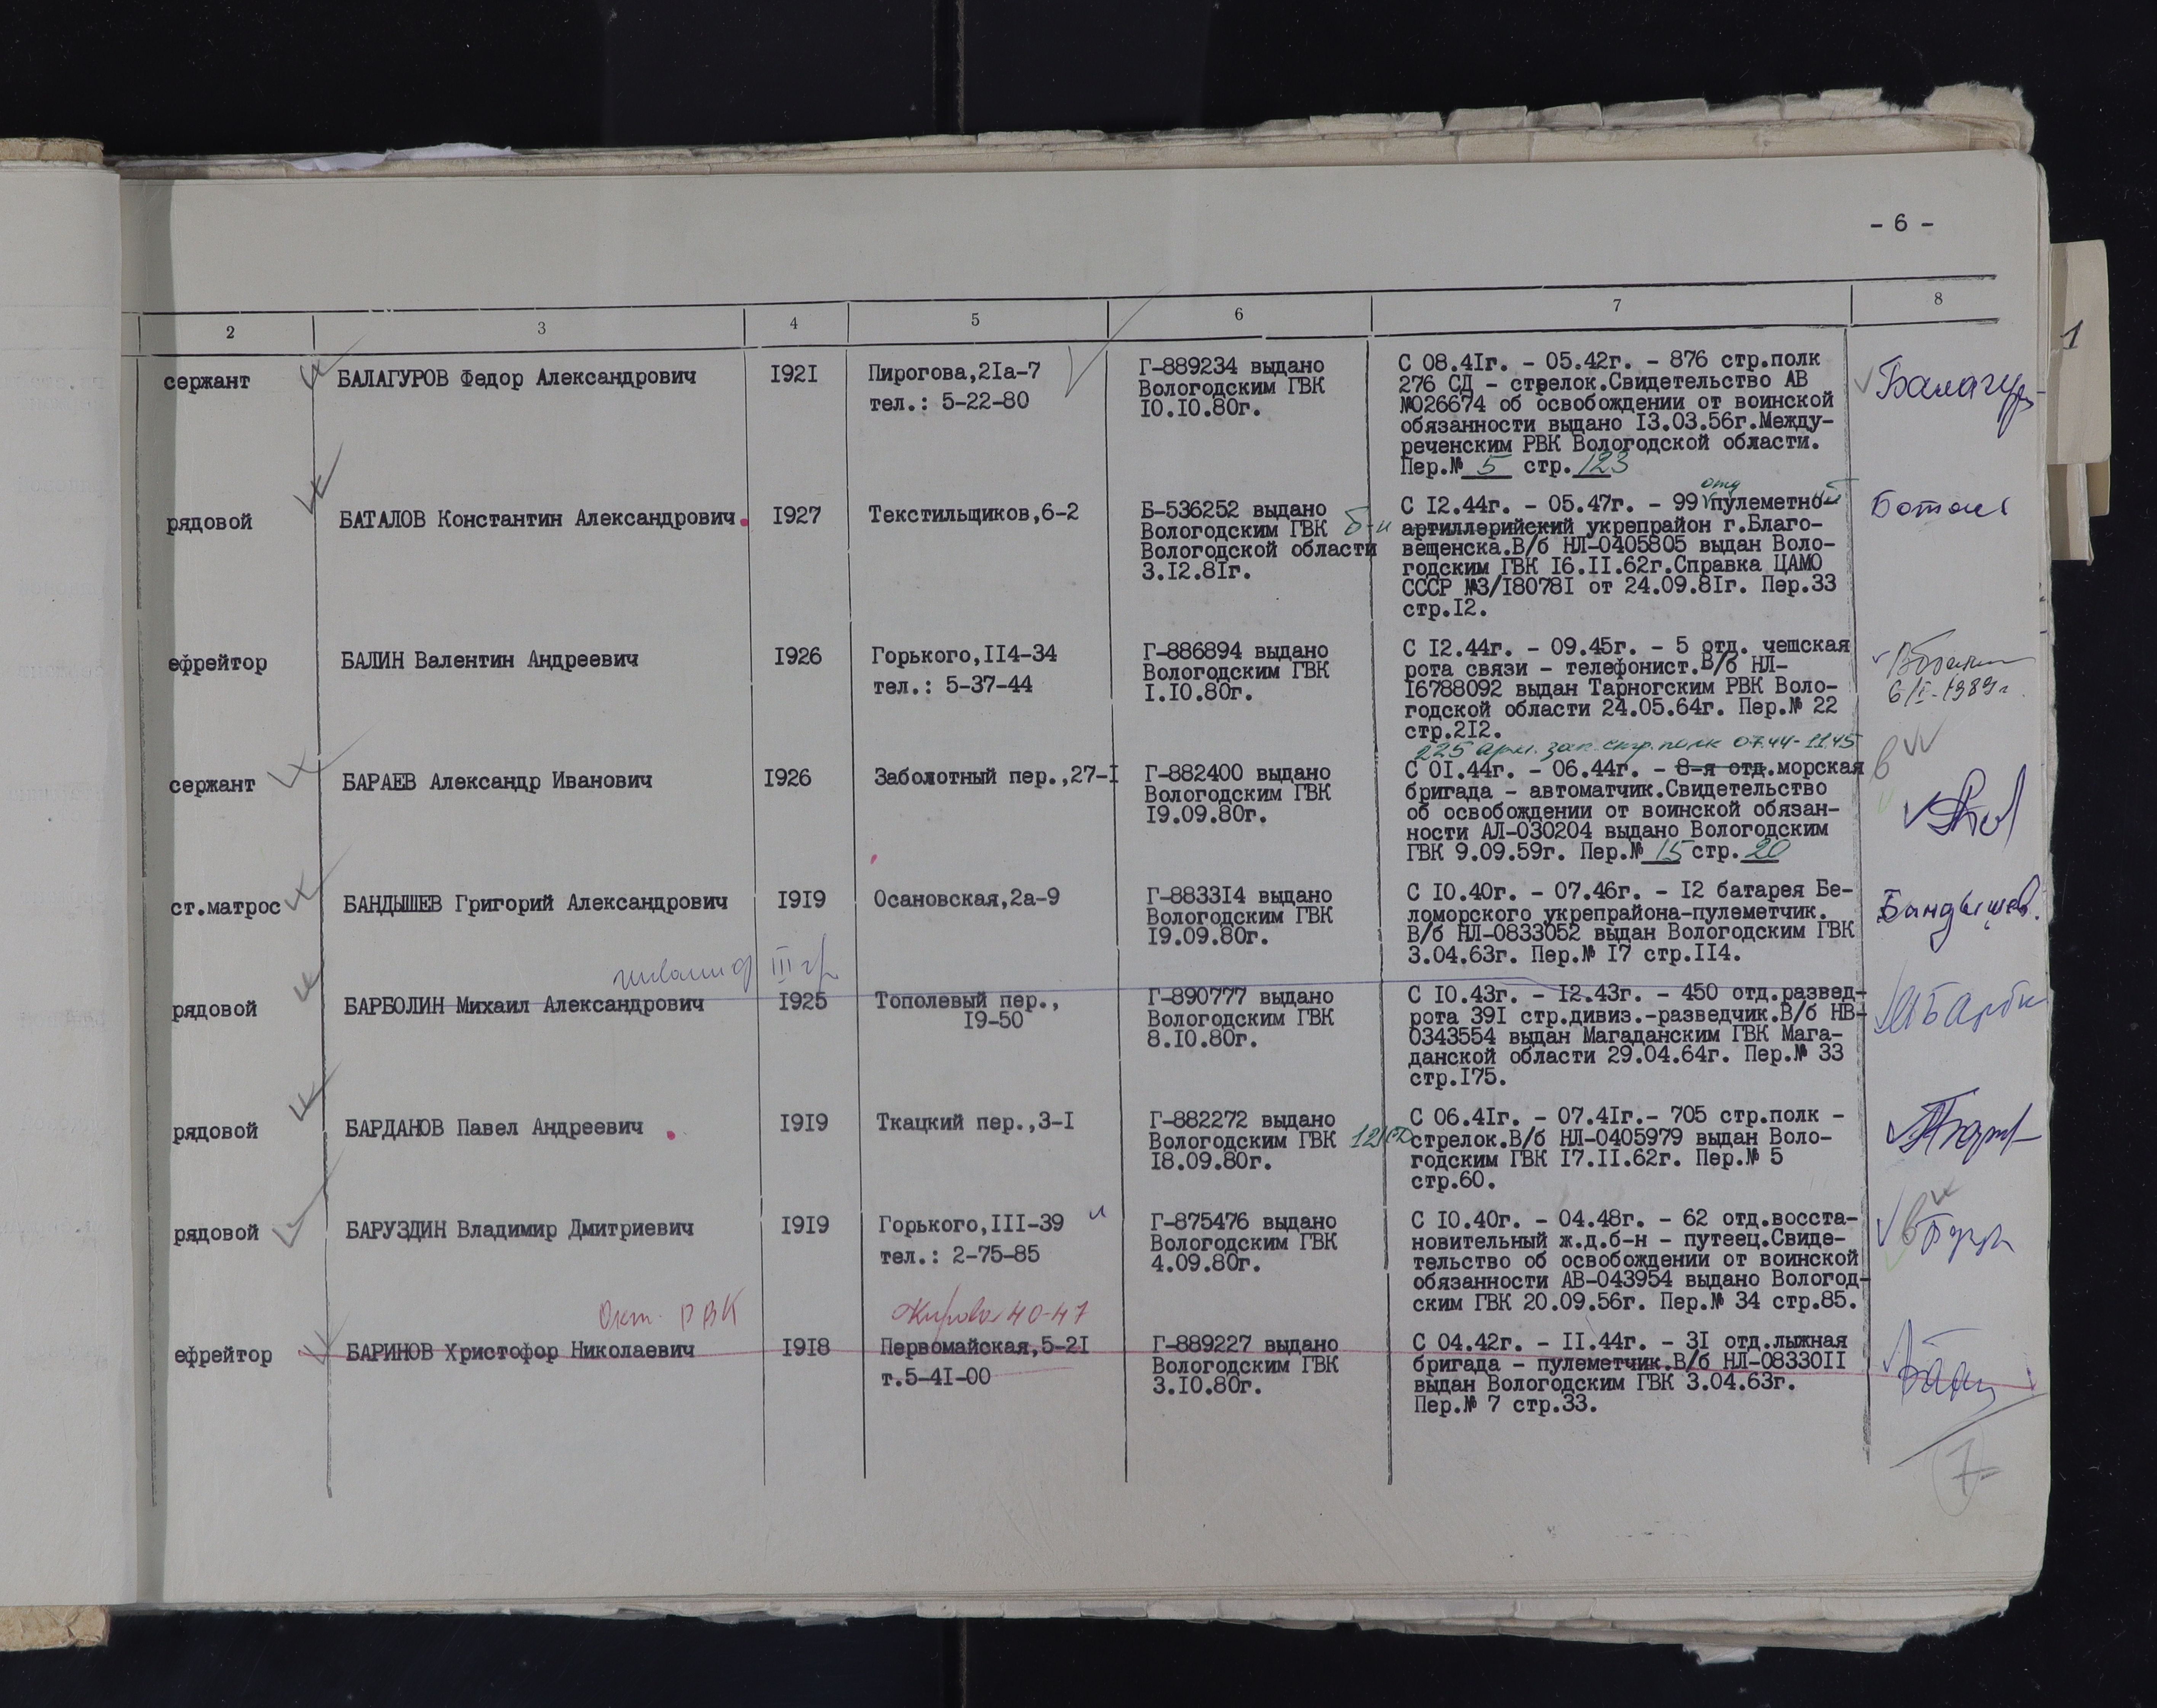 - 6 -
2 3 4 5 6 7 8
сержант
БАЛАГУРОВ Федор Александрович
I92I
Пирогова,2Iа-7
тел.: 5-22-80
Г-889234 выдано
Вологодским ГВК
I0.I0.80г.
С 08.4Iг. - 05.42г. - 876 стр.полк
276 СД - стрелок.Свидетельство АВ
№026674 об освобождении от воинской
обязанности выдано I3.03.56г.Между-
реченским РВК Вологодской области.
Пер.№ 5 стр. 123
рядовой
БАТАЛОВ Константин Александрович
I927
Текстильщиков,6-2
Б-536252 выдано
Вологодским ГВК
Вологодской области
3.I2.8Iг.
б-н
отд
С I2.44г. - 05.47г. - 99 пулеметный
артиллерийский укрепрайон г.Благо-
вещенска.В/б НЛ-0405805 выдан Воло-
годским ГВК I6.II.62г.Справка ЦАМО
СССР №3/I8078I от 24.09.8Iг. Пер.33
стр.I2.
ефрейтор
БАЛИН Валентин Андреевич
I926
Горького,II4-34
тел.: 5-37-44
Г-886894 выдано
Вологодским ГВК
I.I0.80г.
С I2.44г. - 09.45г. - 5 отд. чешская
рота связи - телефонист.В/б НЛ-
I6788092 выдан Тарногским РВК Воло-
годской области 24.05.64г. Пер.№ 22
стр.2I2.
6/I-1989г.
сержант
БАРАЕВ Александр Иванович
I926
Заболотный пер.,27-I
Г-882400 выдано
Вологодским ГВК
I9.09.80г.
225 арм. зап. стр. полк 07.44-11.45
С 0I.44г. - 06.44г. - 8-я отд.морская
бригада - автоматчик.Свидетельство
об освобождении от воинской обязан-
ности АЛ-030204 выдано Вологодским
ГВК 9.09.59г. Пер.№ 15 стр. 20
ст.матрос
БАНДЫШЕВ Григорий Александрович
I9I9
Осановская,2а-9
Г-8833I4 выдано
Вологодским ГВК
I9.09.80г.
С I0.40г. - 07.46г. - I2 батарея Бе-
ломорского укрепрайона-пулеметчик.
В/б НЛ-0833052 выдан Вологодским ГВК
3.04.63г. Пер.№ I7 стр.II4.
Бандышев.
инвалид III гр
рядовой
БАРБОЛИН Михаил Александрович
I925
Тополевый пер.,
I9-50
Г-890777 выдано
Вологодским ГВК
8.I0.80г.
С I0.43г. - I2.43г. - 450 отд.развед-
рота 39I стр.дивиз.-разведчик.В/б НВ-
0343554 выдан Магаданским ГВК Мага-
данской области 29.04.64г. Пер.№ 33
стр.I75.
рядовой
БАРДАНОВ Павел Андреевич
I9I9
Ткацкий пер.,3-I
Г-882272 выдано
Вологодским ГВК
I8.09.80г.
С 06.4Iг. - 07.4Iг.- 705 стр.полк -
стрелок.В/б НЛ-0405979 выдан Воло-
годским ГВК I7.II.62г. Пер.№ 5
стр.60.
рядовой
БАРУЗДИН Владимир Дмитриевич
I9I9
Горького,III-39
тел.: 2-75-85
Г-875476 выдано
Вологодским ГВК
4.09.80г.
С I0.40г. - 04.48г. - 62 отд.восста-
новительный ж.д.б-н - путеец.Свиде-
тельство об освобождении от воинской
обязанности АВ-043954 выдано Вологод-
ским ГВК 20.09.56г. Пер.№ 34 стр.85.
Окт. РВК
Кирова 40-47
ефрейтор
БАРИНОВ Христофор Николаевич
I9I8
Первомайская,5-2I
т.5-4I-00
Г-889227 выдано
Вологодским ГВК
3.I0.80г.
С 04.42г. - II.44г. - 3I отд.лыжная
бригада - пулеметчик.В/б НЛ-08330II
выдан Вологодским ГВК 3.04.63г.
Пер.№ 7 стр.33.
7
1